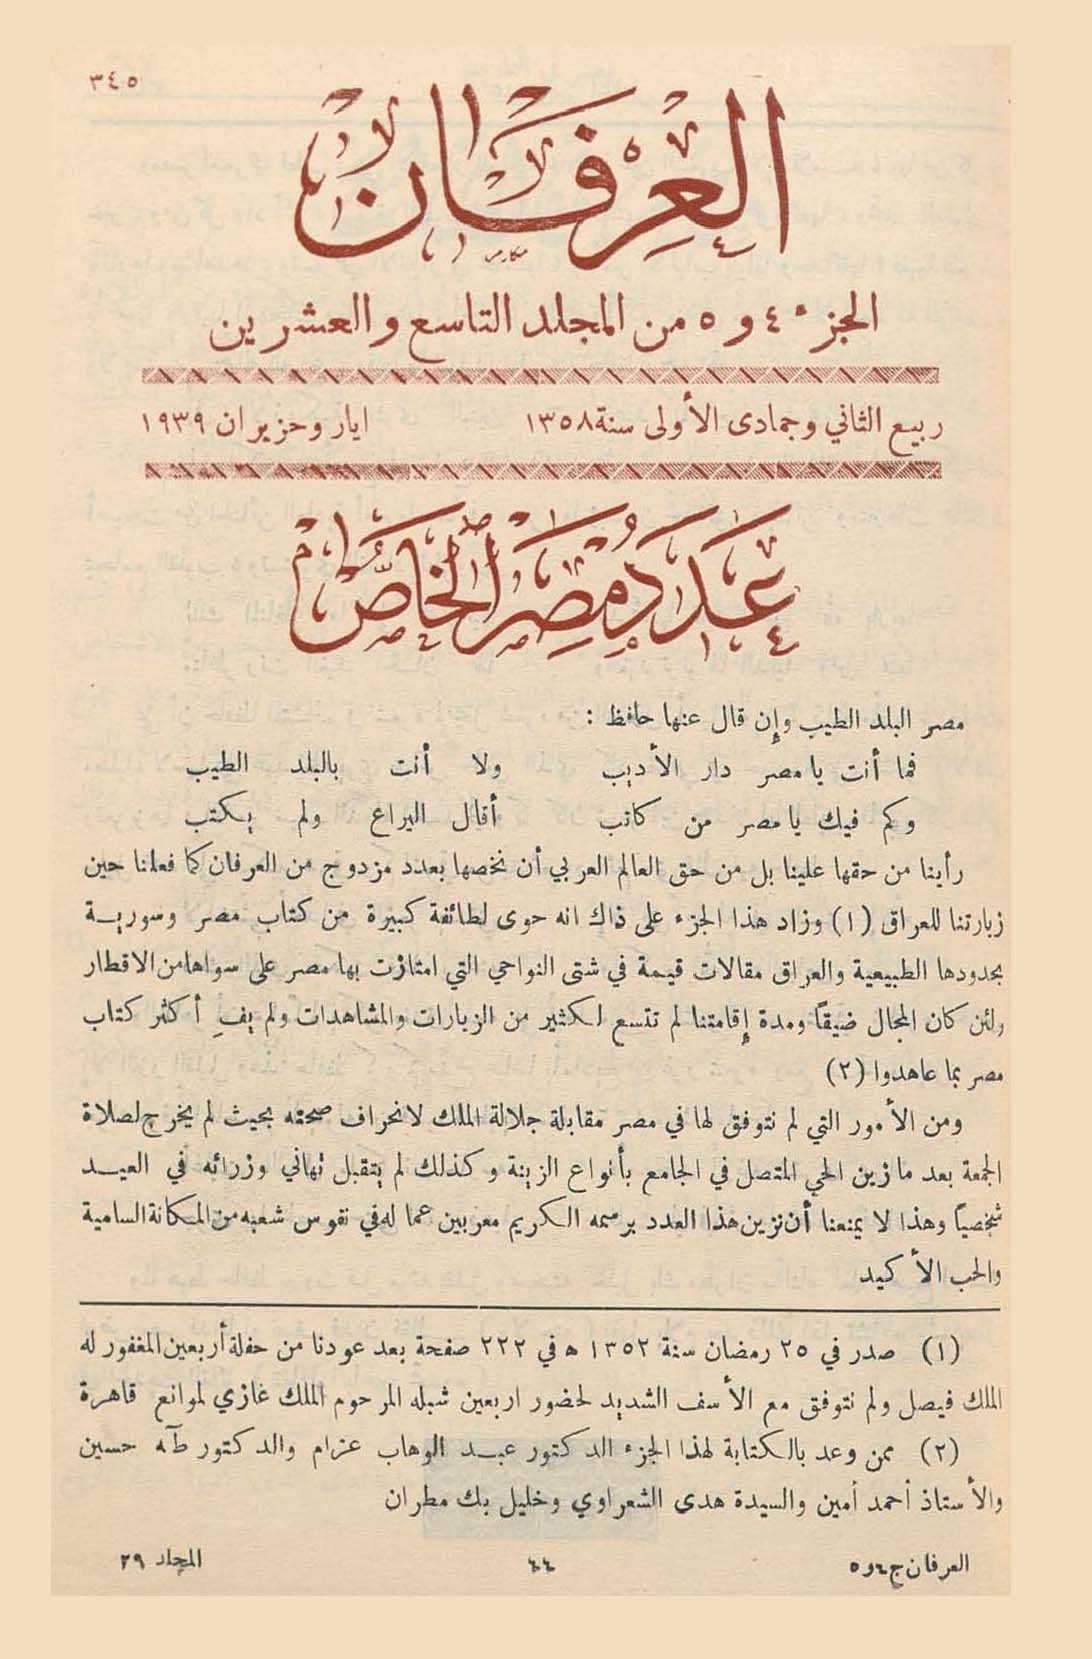 ٣٤٥
العرفان
الجزء ٤ و ٥ من المجلد التاسع والعشرين
ربيع الثاني وجمادى الأولى سنة ١٣٥٨ ايار وحزيران ١٩٣٩
عدد مصر الخاص
مصر البلد الطيب وإن قال عنها حافظ :
فما أنت يا مصر دار الأديب ولا أنت بالبلد الطيب
وكم فيك يا مصر من كاتب أقال اليراع ولم يكتب
رأينا من حقها علينا بل من حق العالم العربي أن نخصها بعدد مزدوج من العرفان كما فعلنا حين
زيارتنا للعراق (١) وزاد هذا الجزء على ذاك انه حوى لطائفة كبيرة من كتاب مصر وسورية
بحدودها الطبيعية والعراق مقالات قيمة في شتى النواحي التي امتازت بها مصر على سواها من الاقطار
ولئن كان المجال ضيقاً ومدة إقامتنا لم تتسع لكثير من الزيارات والمشاهدات ولم يفِ أكثر كتاب
مصر بما عاهدوا (٢)
ومن الأمور التي لم نتوفق لها في مصر مقابلة جلالة الملك لانحراف صحته بحيث لم يخرج لصلاة
الجمعة بعد ما زين الحي المتصل في الجامع بأنواع الزينة وكذلك لم يتقبل تهاني وزرائه في العيد
شخصياً وهذا لا يمنعنا أن نزين هذا العدد برسمه الكريم معربين عما له في نفوس شعبه من المكانة السامية
والحب الأكيد
(١) صدر في ٢٥ رمضان سنة ١٣٥٢ ه في ٢٢٢ صفحة بعد عودنا من حفلة أربعين المغفور له
الملك فيصل ولم نتوفق مع الأسف الشديد لحضور اربعين شبله المرحوم الملك غازي لموانع قاهرة
(٢) ممن وعد بالكتابة لهذا الجزء الدكتور عبد الوهاب عزام والدكتور طه حسين
والأستاذ أحمد أمين والسيدة هدى الشعراوي وخليل بك مطران
العرفان ج ٤ و ٥ ٤٤ المجلد ٢٩